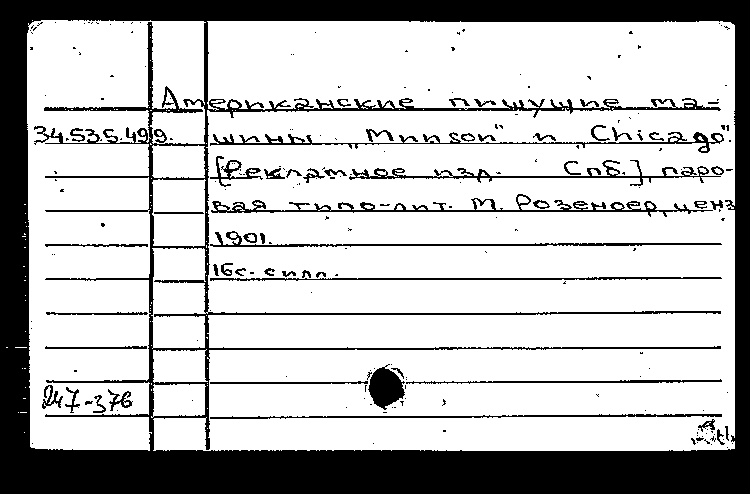 Американские пишущие ма-
34.53.5.499. шины „Munson" и „Chicago".
[Рекламное изд. Спб.], паро-
вая типо-лит. М. Розеноер, ценз
1901.
16с. с илл.
247-376